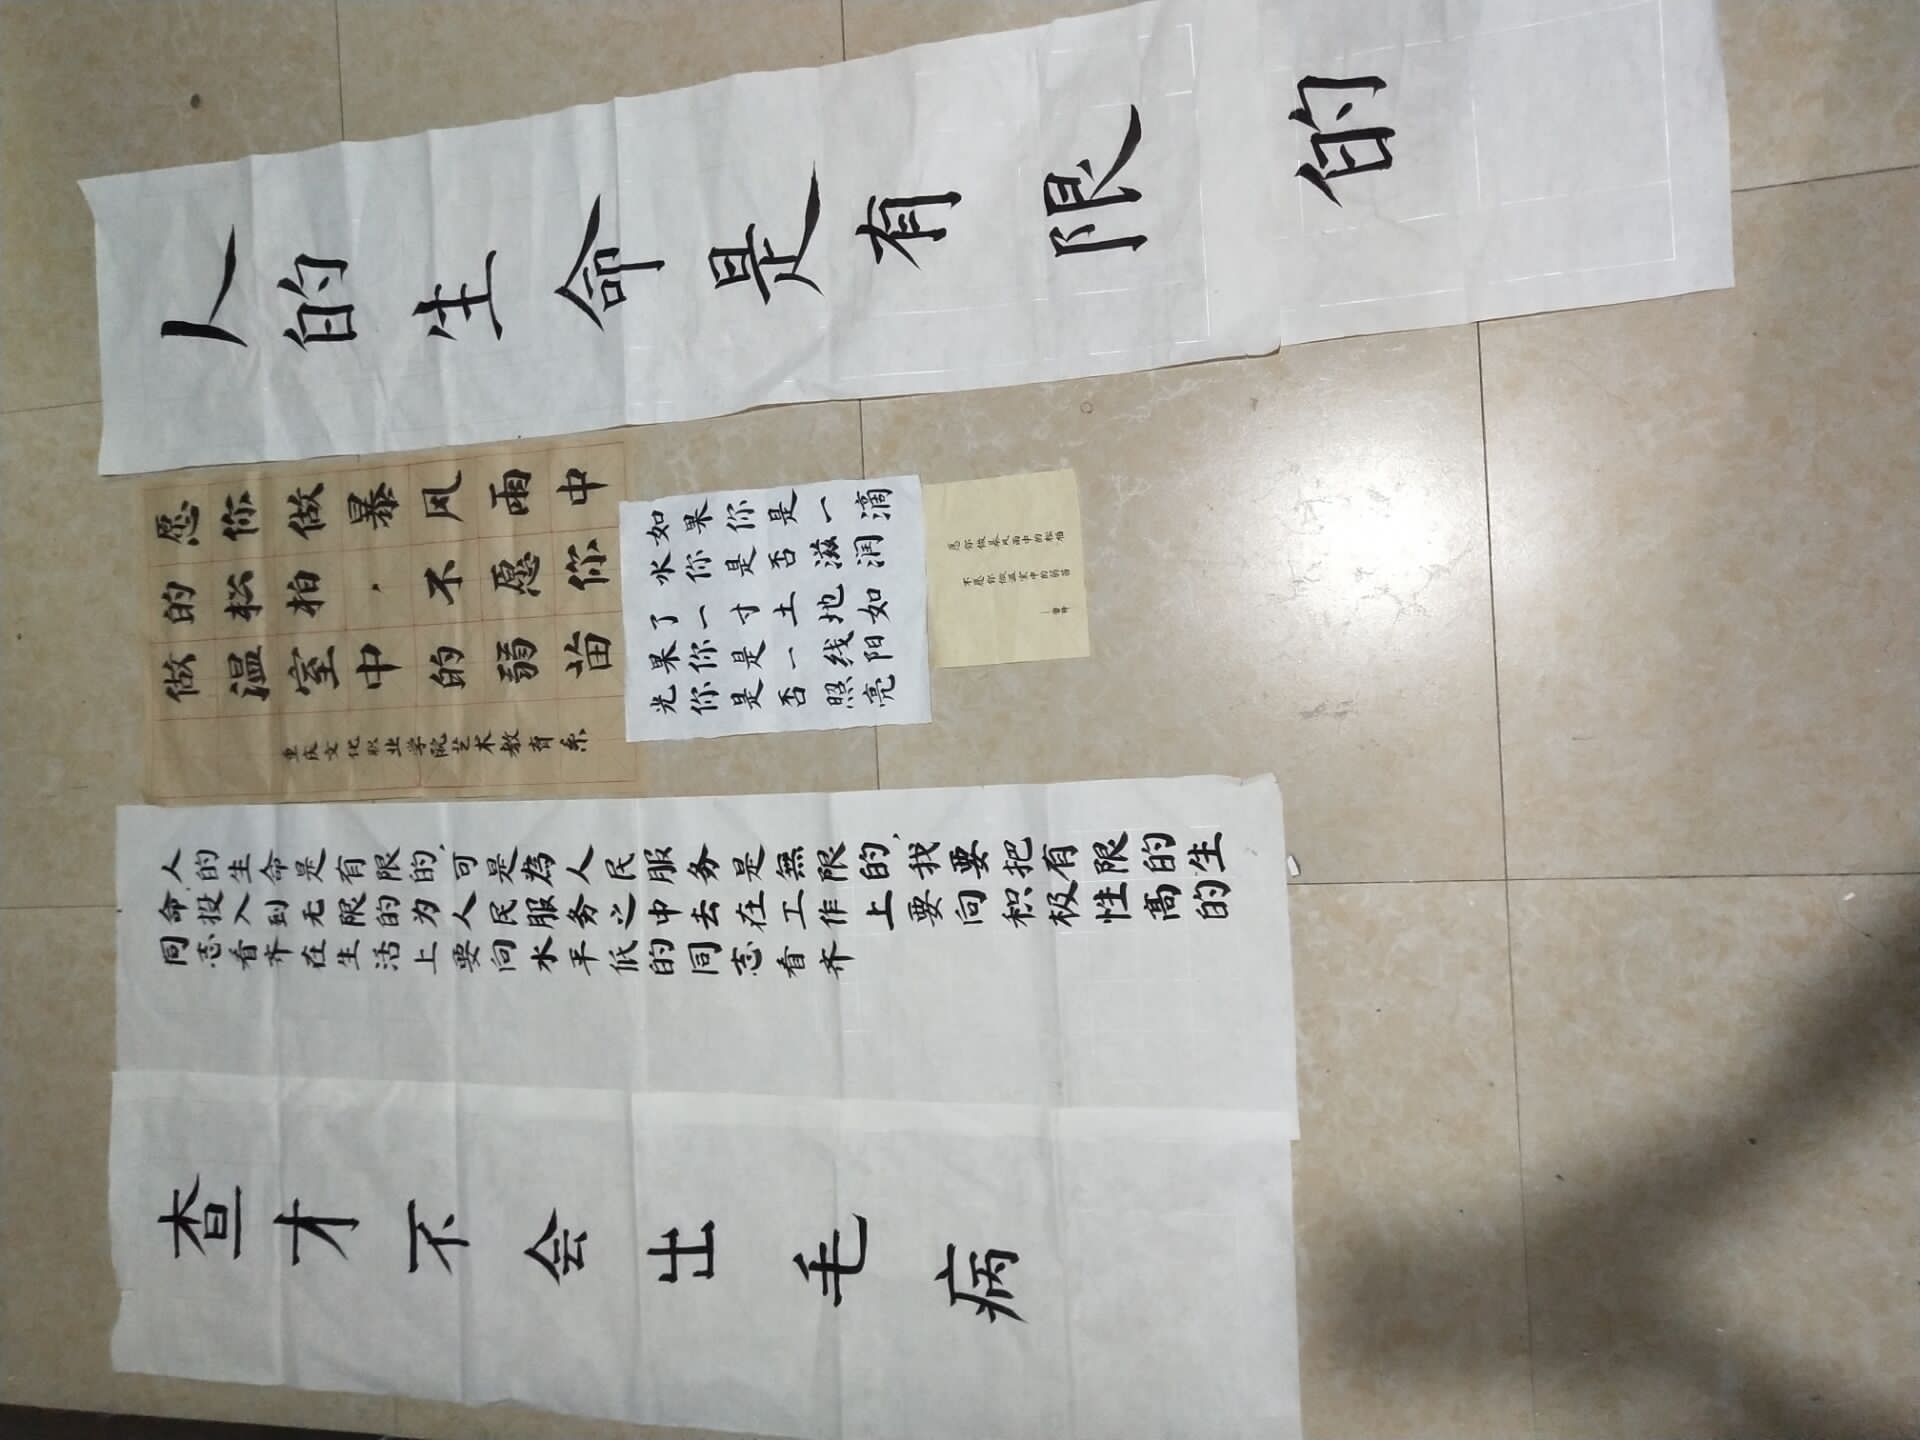 人的生命是有限的
愿你做暴风雨中
的松柏，不愿你
做温室中的弱苗
重庆文化职业学院艺术教育系
如果你是一滴
水你是否滋润
了一寸土地如
果你是一线阳
光你是否照亮
愿你做暴风雨中的松柏
不愿你做温室中的弱苗
—雷锋
人的生命是有限的，可是為人民服务是無限的，我要把有限的生
命，投入到无限的为人民服务之中去在工作上要向积极性高的
同志看齐在生活上要向水平低的同志看齐
查才不会出毛病